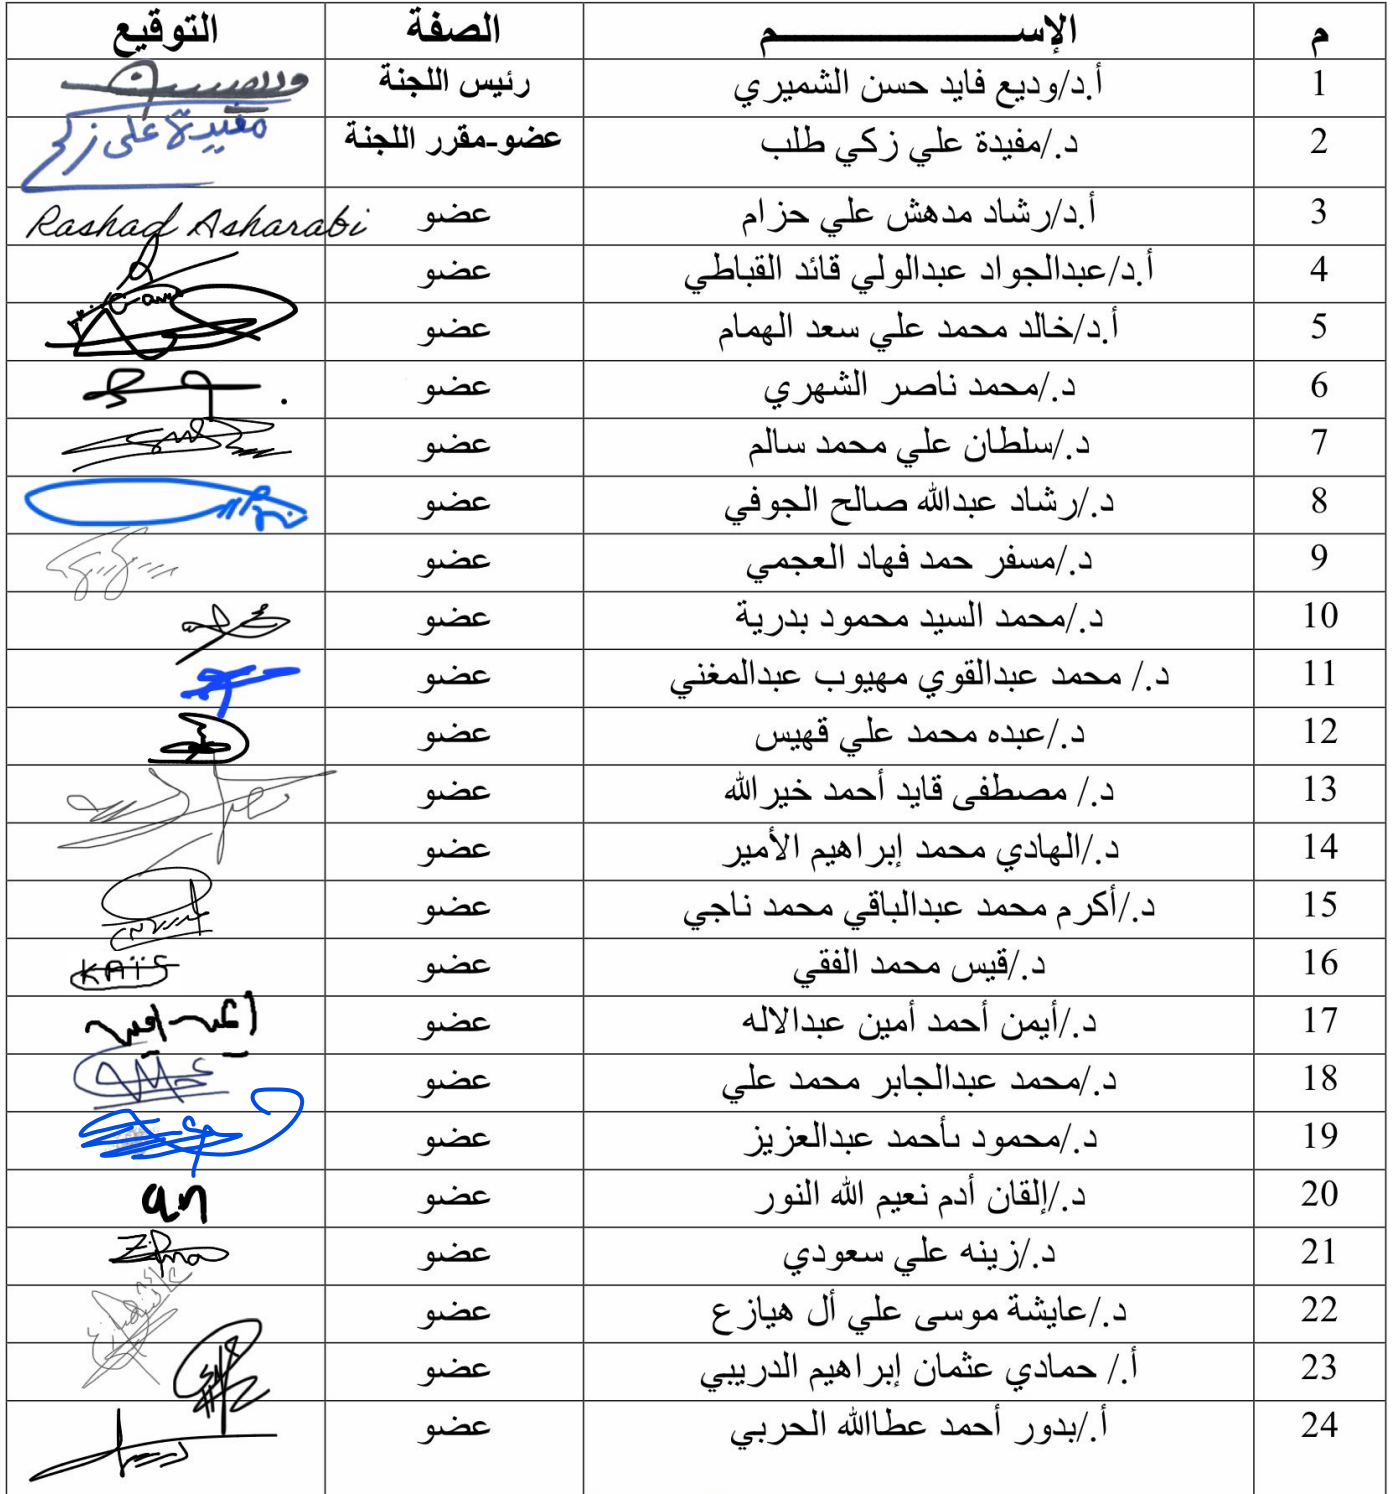 م الإســـــــــــم الصفة التوقيع
1 أ.د/وديع فايد حسن الشميري رئيس اللجنة
2 د./مفيدة علي زكي طلب عضو-مقرر اللجنة مفيدة على زكى
3 أ.د/رشاد مدهش علي حزام عضو Rashad Asharabi
4 أ.د/عبدالجواد عبدالولي قائد القباطي عضو
5 أ.د/خالد محمد علي سعد الهمام عضو
6 د./محمد ناصر الشهري عضو
7 د./سلطان علي محمد سالم عضو
8 د./رشاد عبدالله صالح الجوفي عضو
9 د./مسفر حمد فهاد العجمي عضو
10 د./محمد السيد محمود بدرية عضو
11 د./ محمد عبدالقوي مهيوب عبدالمغني عضو
12 د./عبده محمد علي قهيس عضو
13 د./ مصطفى قايد أحمد خيرالله عضو
14 د./الهادي محمد إبراهيم الأمير عضو
15 د./أكرم محمد عبدالباقي محمد ناجي عضو
16 د./قيس محمد الفقي عضو KAIS
17 د./أيمن أحمد أمين عبدالاله عضو
18 د./محمد عبدالجابر محمد علي عضو
19 د./محمود ىأحمد عبدالعزيز عضو
20 د./إلقان أدم نعيم الله النور عضو
21 د./زينه علي سعودي عضو
22 د./عايشة موسى علي أل هيازع عضو
23 أ./ حمادي عثمان إبراهيم الدريبي عضو
24 أ./بدور أحمد عطاالله الحربي عضو